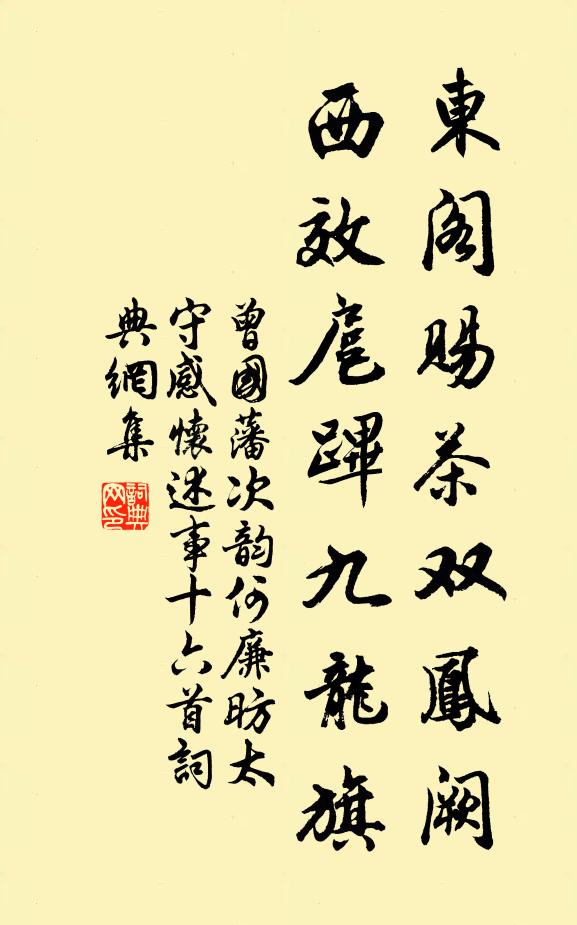 東阁賜茶双鳳阙
西效扈蹕九龍旗
曾國藩次韵何廉昉太
守感懷述事十六首詞
典網集
詞典
网印